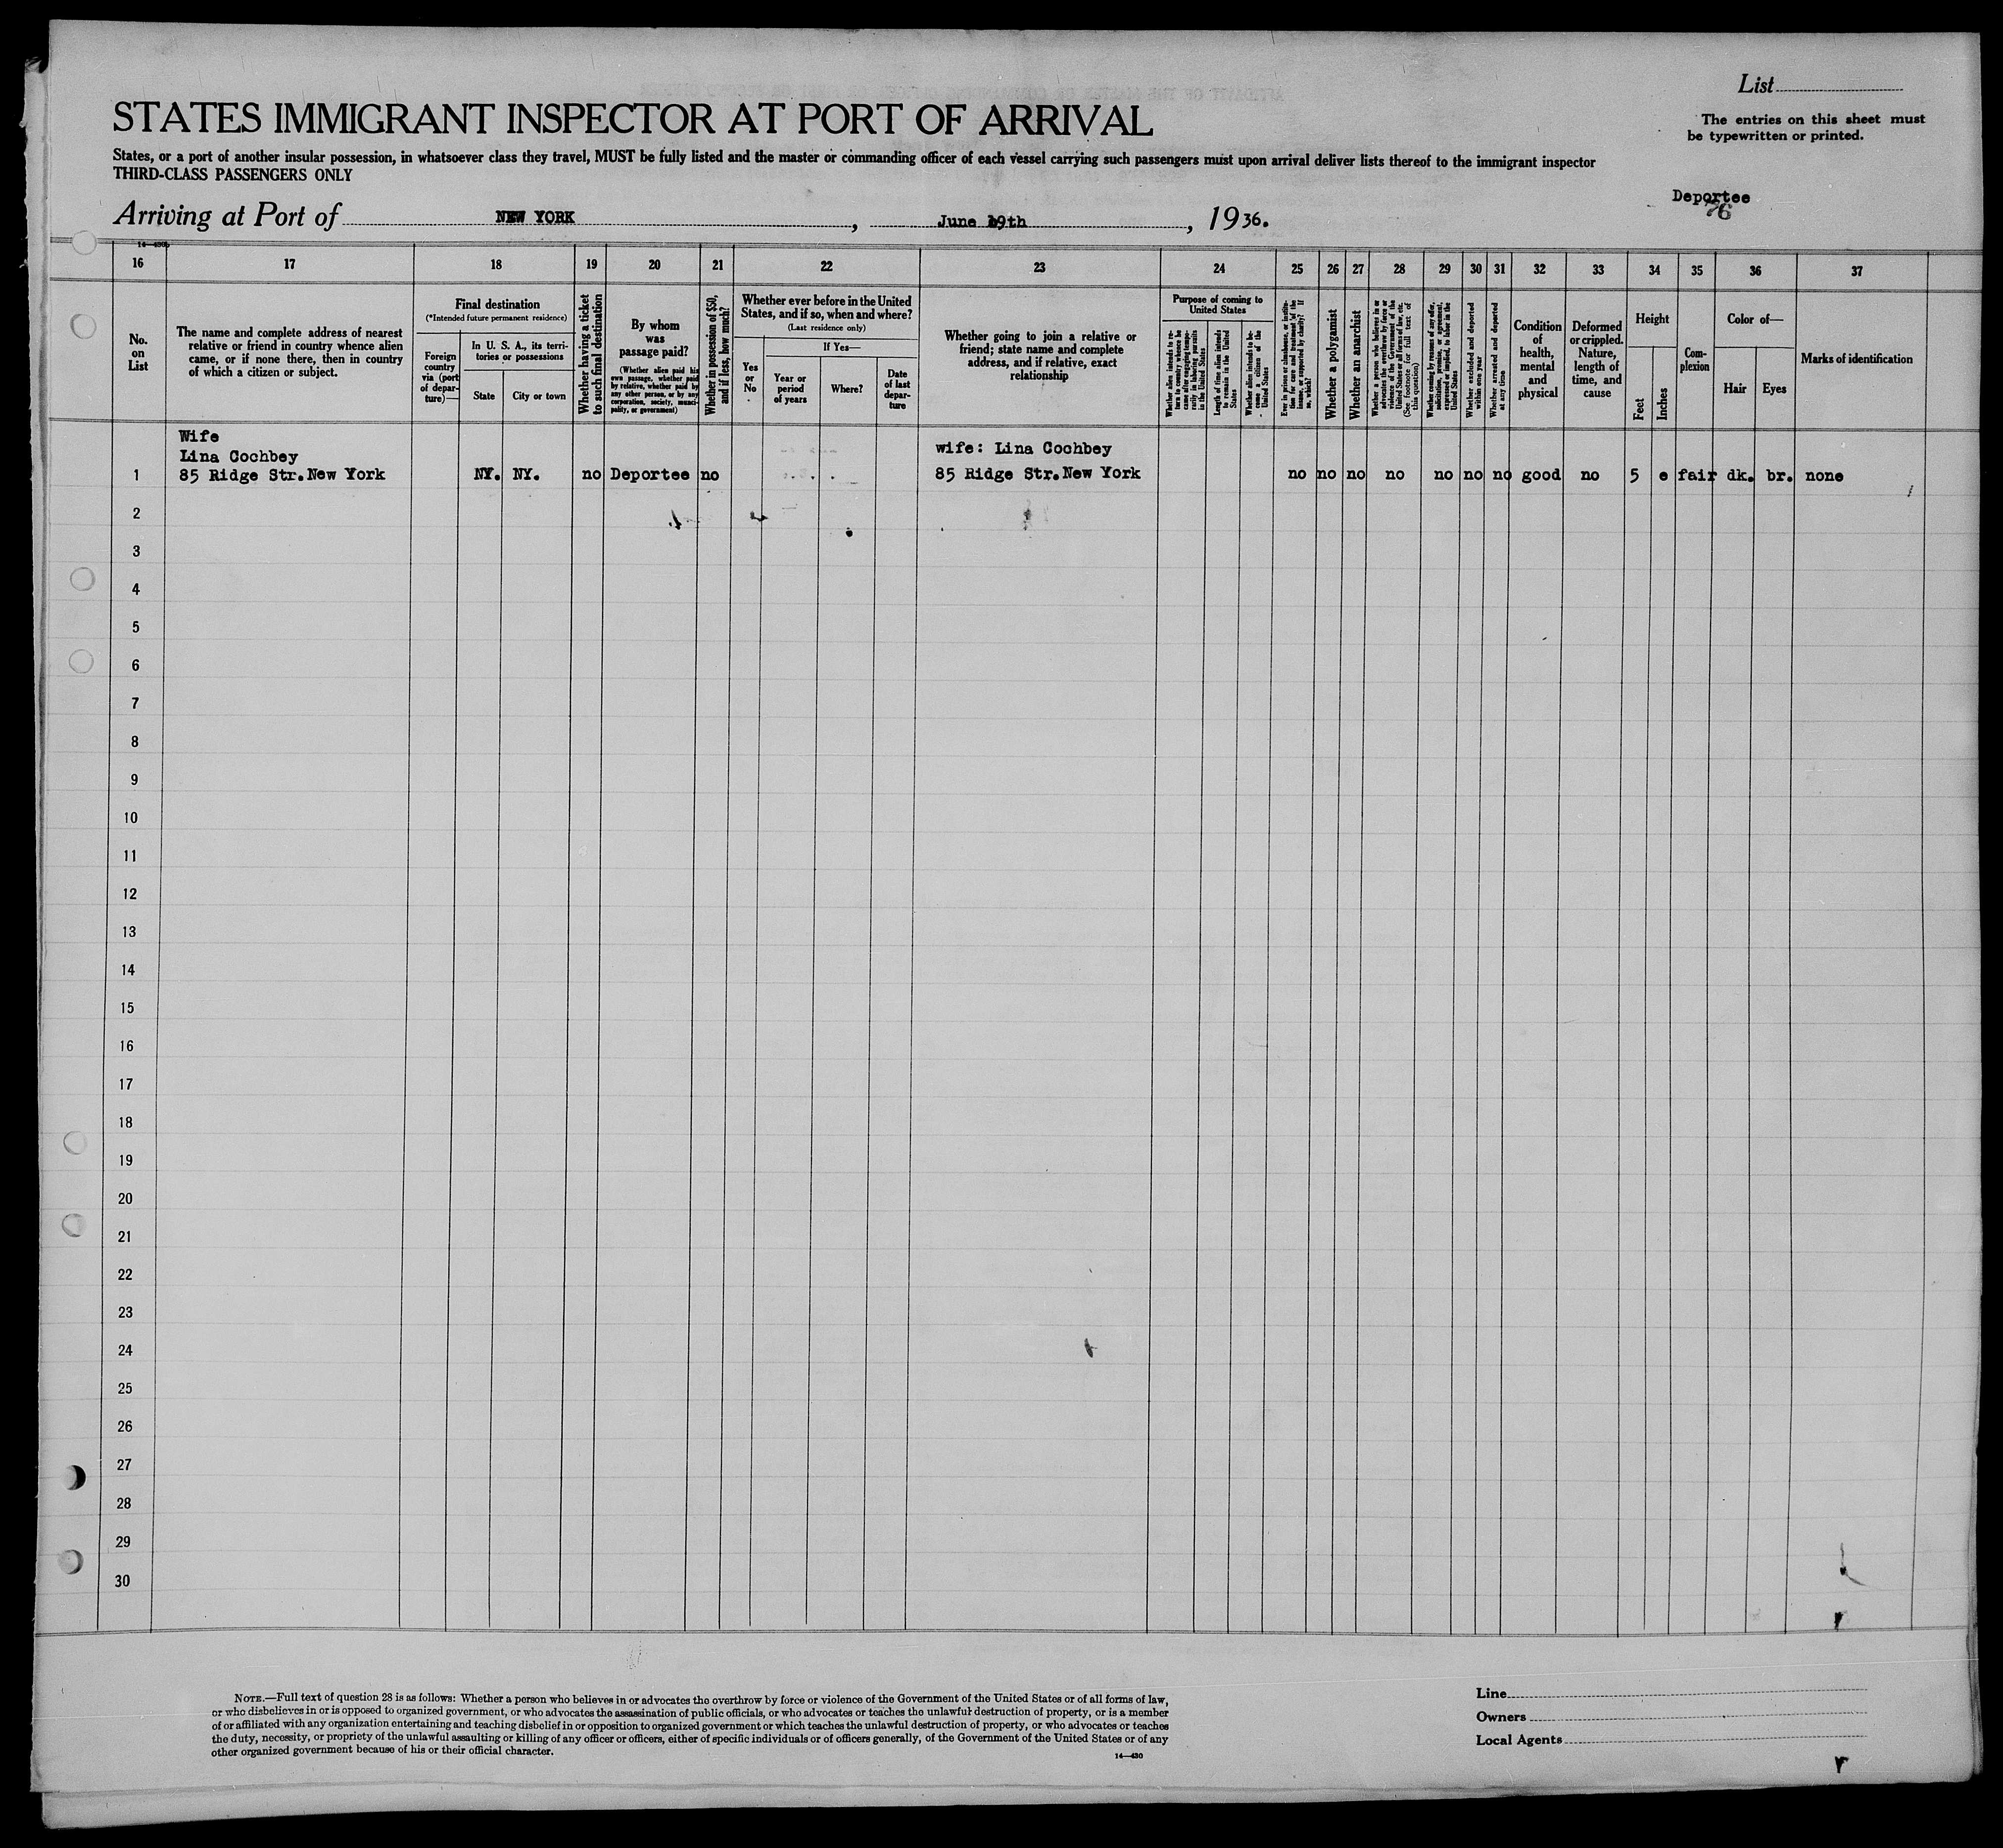 List
The entries on this sheet must
be typewritten or printed.
STATES IMMIGRANT INSPECTOR AT PORT OF ARRIVAL
States, or a port of another insular possession, in whatsoever class they travel, MUST be fully listed and the master or commanding officer of each vessel carrying such passengers must upon arrival deliver lists thereof to the immigrant inspector
THIRD-CLASS PASSENGERS ONLY
Deportee
76
Arriving at Port of NEW YORK, June 19th, 1936.
16 17 18 19 20 21 22 23 24 25 26 27 28 29 30 31 32 33 34 35 36 37
No.
on
List
The name and complete address of nearest
relative or friend in country whence alien
came, or if none there, then in country
of which a citizen or subject.
Final destination
(*Intended future permanent residence)
Foreign
country
via (port
of depar-
ture)—
In U. S. A., its terri-
tories or possessions
State
City or town
Whether having a ticket
to such final destination
By whom
was
passage paid?
(Whether alien paid his
own passage, whether paid
by relative, whether paid by
any other person, or by any
corporation, society, munici-
pality, or government)
Whether in possession of $50,
and if less, how much?
Whether ever before in the United
States, and if so, when and where?
(Last residence only)
Yes
or
No
If Yes—
Year or
period
of years
Where?
Date
of last
depar-
ture
Whether going to join a relative or
friend; state name and complete
address, and if relative, exact
relationship
Purpose of coming to
United States
Whether alien intends to re-
turn to country whence he
came after engaging tempo-
rarily in laboring pursuits
in the United States
Length of time alien intends
to remain in the United
States
Whether alien intends to be-
come a citizen of the
United States
Ever in prison or almshouse, or institu-
tion for care and treatment of the
insane, or supported by charity? If
so, which?
Whether a polygamist
Whether an anarchist
Whether a person who believes in or
advocates the overthrow by force or
violence of the Government of the
United States or all forms of law, etc.
(See footnote for full text of
this question)
Whether coming by reason of any offer,
solicitation, promise, or agreement,
expressed or implied, to labor in the
United States
Whether excluded and deported
within one year
Whether arrested and deported
at any time
Condition
of
health,
mental
and
physical
Deformed
or crippled.
Nature,
length of
time, and
cause
Height
Feet
Inches
Com-
plexion
Color of—
Hair
Eyes
Marks of identification
Wife
Lina Cochbey
wife: Lina Cochbey
1 85 Ridge Str.New York NY. NY. no Deportee no 85 Ridge Str.New York no no no no no no no good no 5 e fair dk. br. none
2
3
4
5
6
7
8
9
10
11
12
13
14
15
16
17
18
19
20
21
22
23
24
25
26
27
28
29
30
NOTE.—Full text of question 28 is as follows: Whether a person who believes in or advocates the overthrow by force or violence of the Government of the United States or of all forms of law,
or who disbelieves in or is opposed to organized government, or who advocates the assassination of public officials, or who advocates or teaches the unlawful destruction of property, or is a member
of or affiliated with any organization entertaining and teaching disbelief in or opposition to organized government or which teaches the unlawful destruction of property, or who advocates or teaches
the duty, necessity, or propriety of the unlawful assaulting or killing of any officer or officers, either of specific individuals or of officers generally, of the Government of the United States or of any
other organized government because of his or their official character.
14—430
Line
Owners
Local Agents